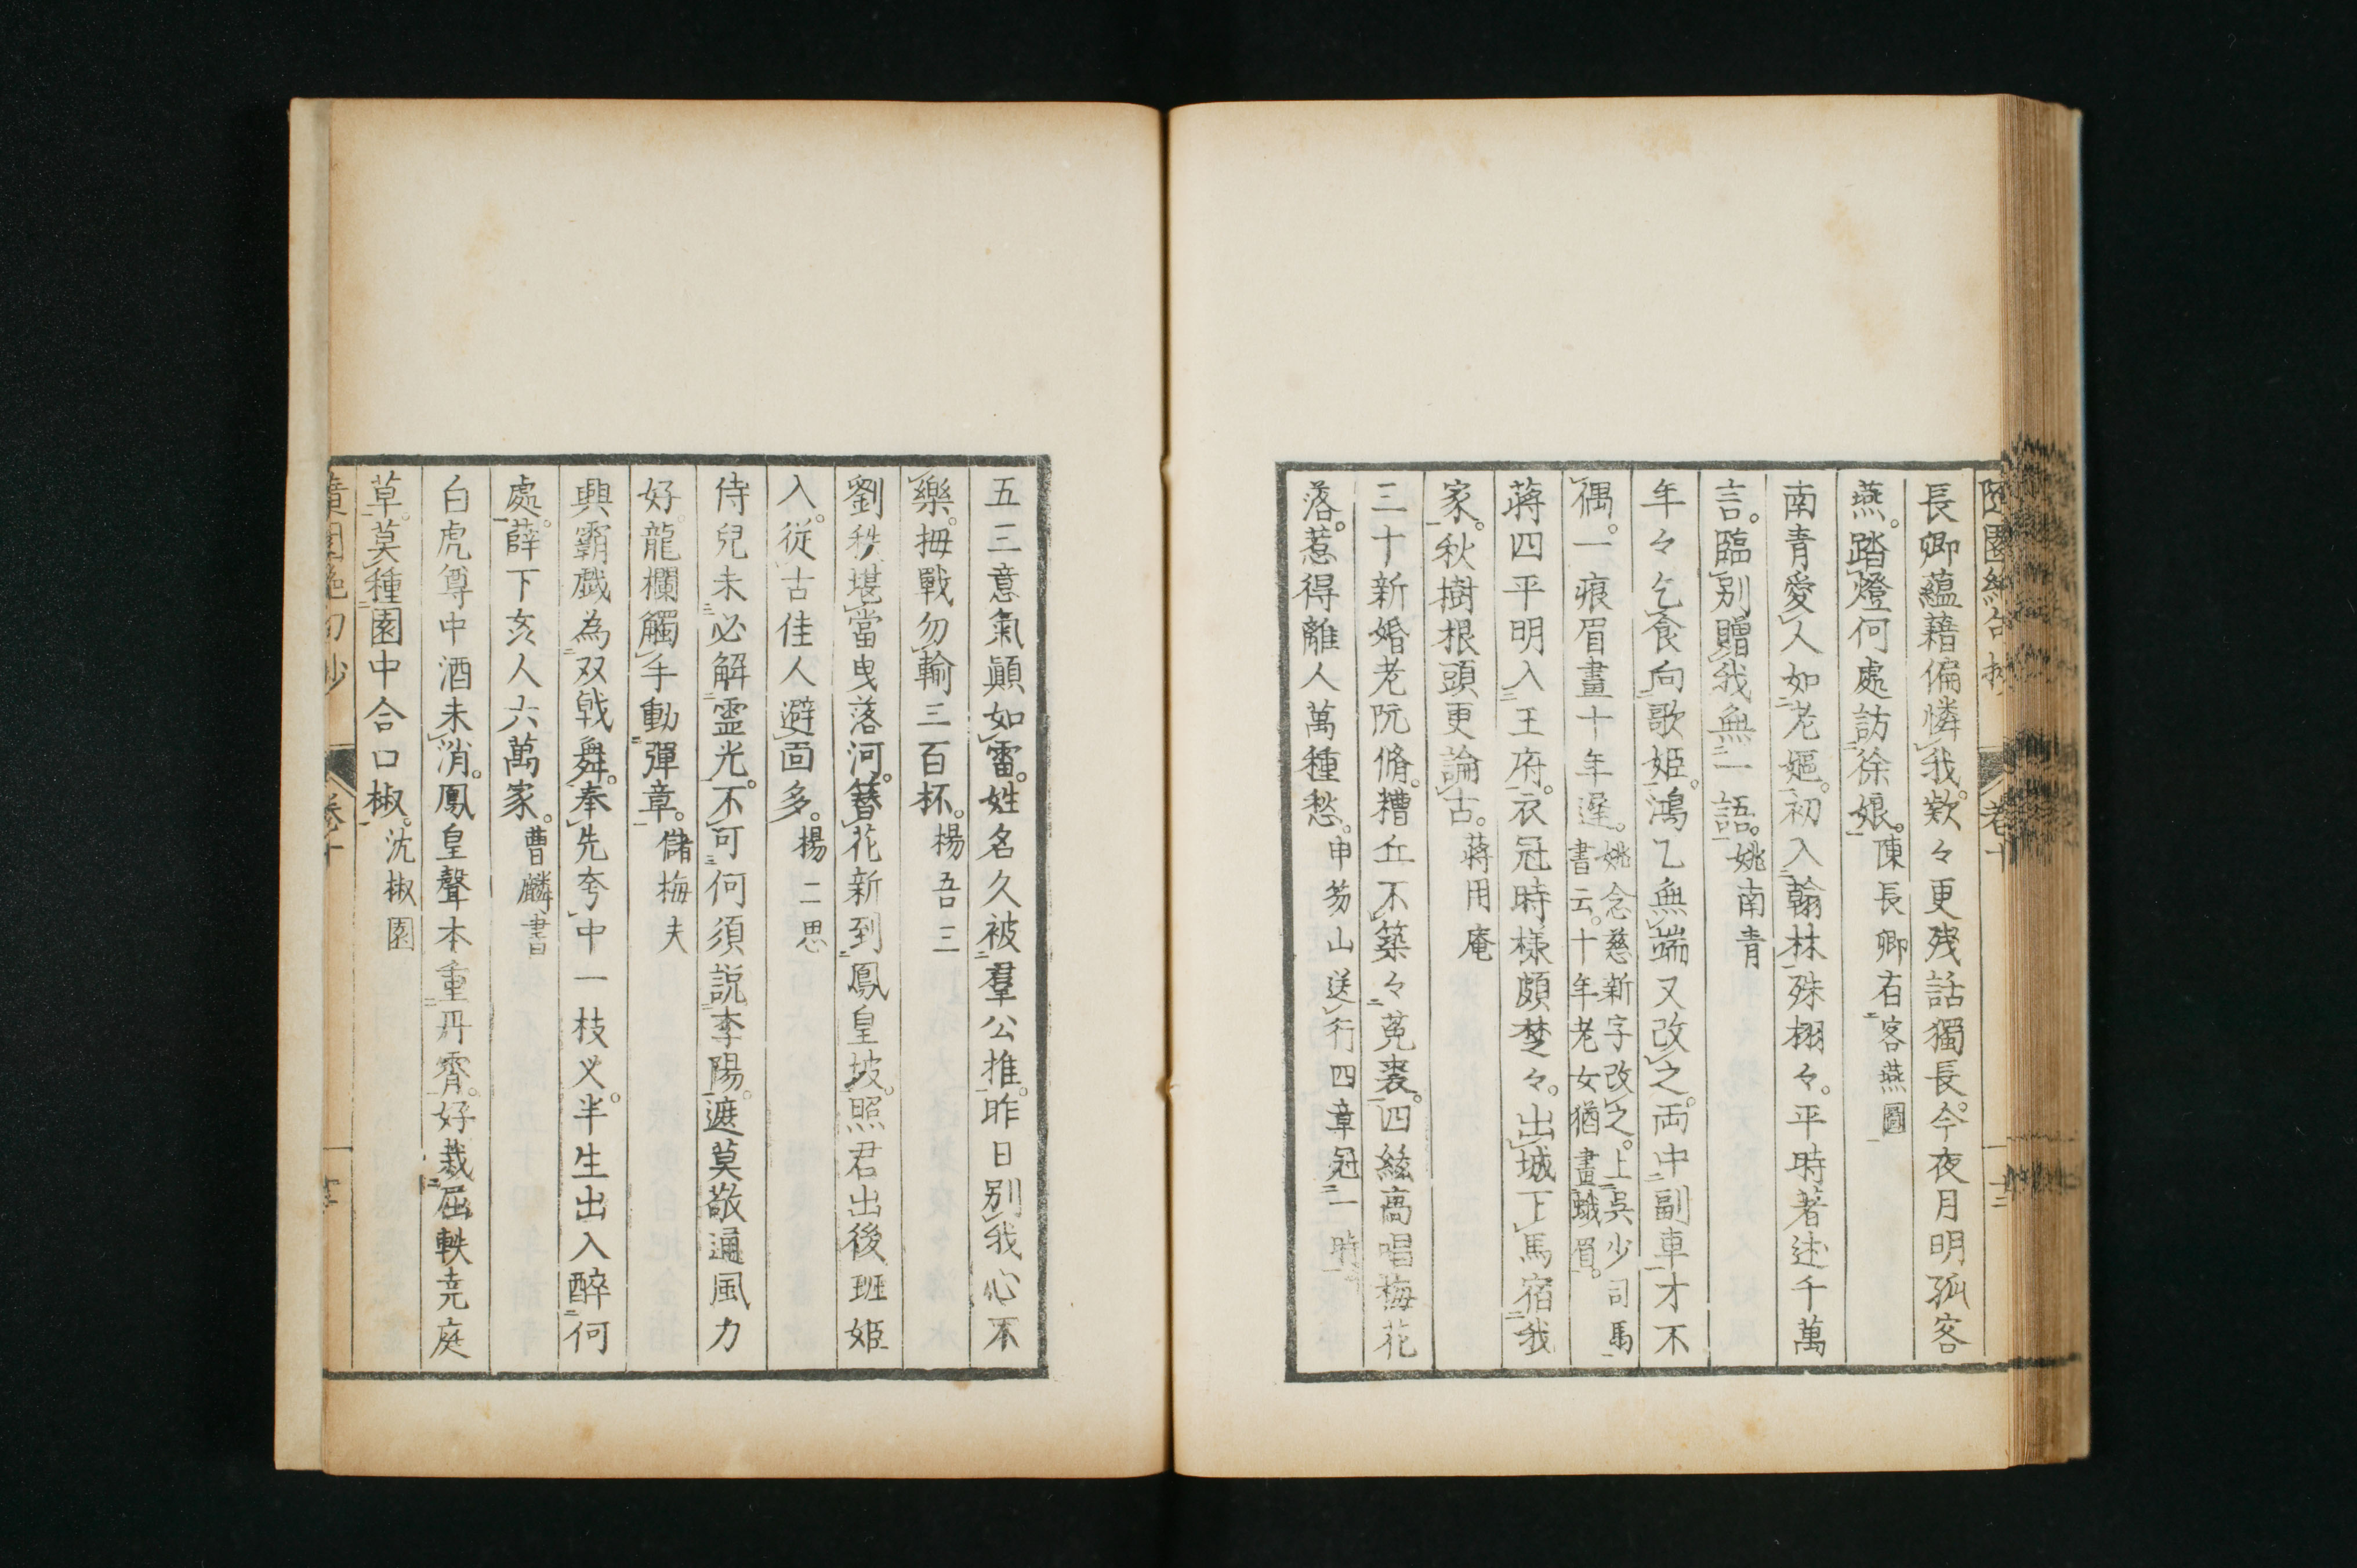 長卿蘊藉偏憐我。欵々更殘話獨長。今夜月明孤客
燕。踏燈何處訪徐娘。陳長卿有客燕圖
南青愛人如老嫗。初入翰林殊栩々。平時著述千萬
言。臨別贈我無一語。姚南青
年々乞食向歌姬。鴻乙無端又改之。両中副車才不
偶。一痕眉畫十年遲。姚念慈新字改之。上吳少司馬
書云。十年老女猶畫蛾眉。
蔣四平明入王府。衣冠時様頗楚々。出城下馬宿我
家。秋樹根頭更論古。蔣用庵
三十新婚老阮脩。糟丘不築々菟裘。四絃高唱梅花
落。惹得離人萬種愁。申笏山送行四章冠一時。
五三意氣顛如雷。姓名久被羣公推。昨日別我心不
樂。拇戰勿輸三百杯。楊吾三
劉秩堪當曳落河。簪花新到鳳皇坡。照君出後班姬
入。從古佳人避面多。楊二思
侍兒未必解靈光。不可何須説李陽。遮莫敬通風力
好。龍欄觸手動彈章。儲梅夫
興霸戲為双戟舞。奉先夸中一枝叉。半生出入醉何
處。薛下亥人六萬家。曹麟書
白虎尊中酒未消。鳳皇聲本重丹霄。好栽屈軼堯庭
草。莫種園中合口椒。沈椒園